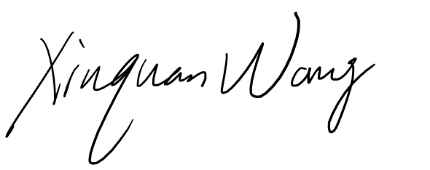 Xinquan Wang